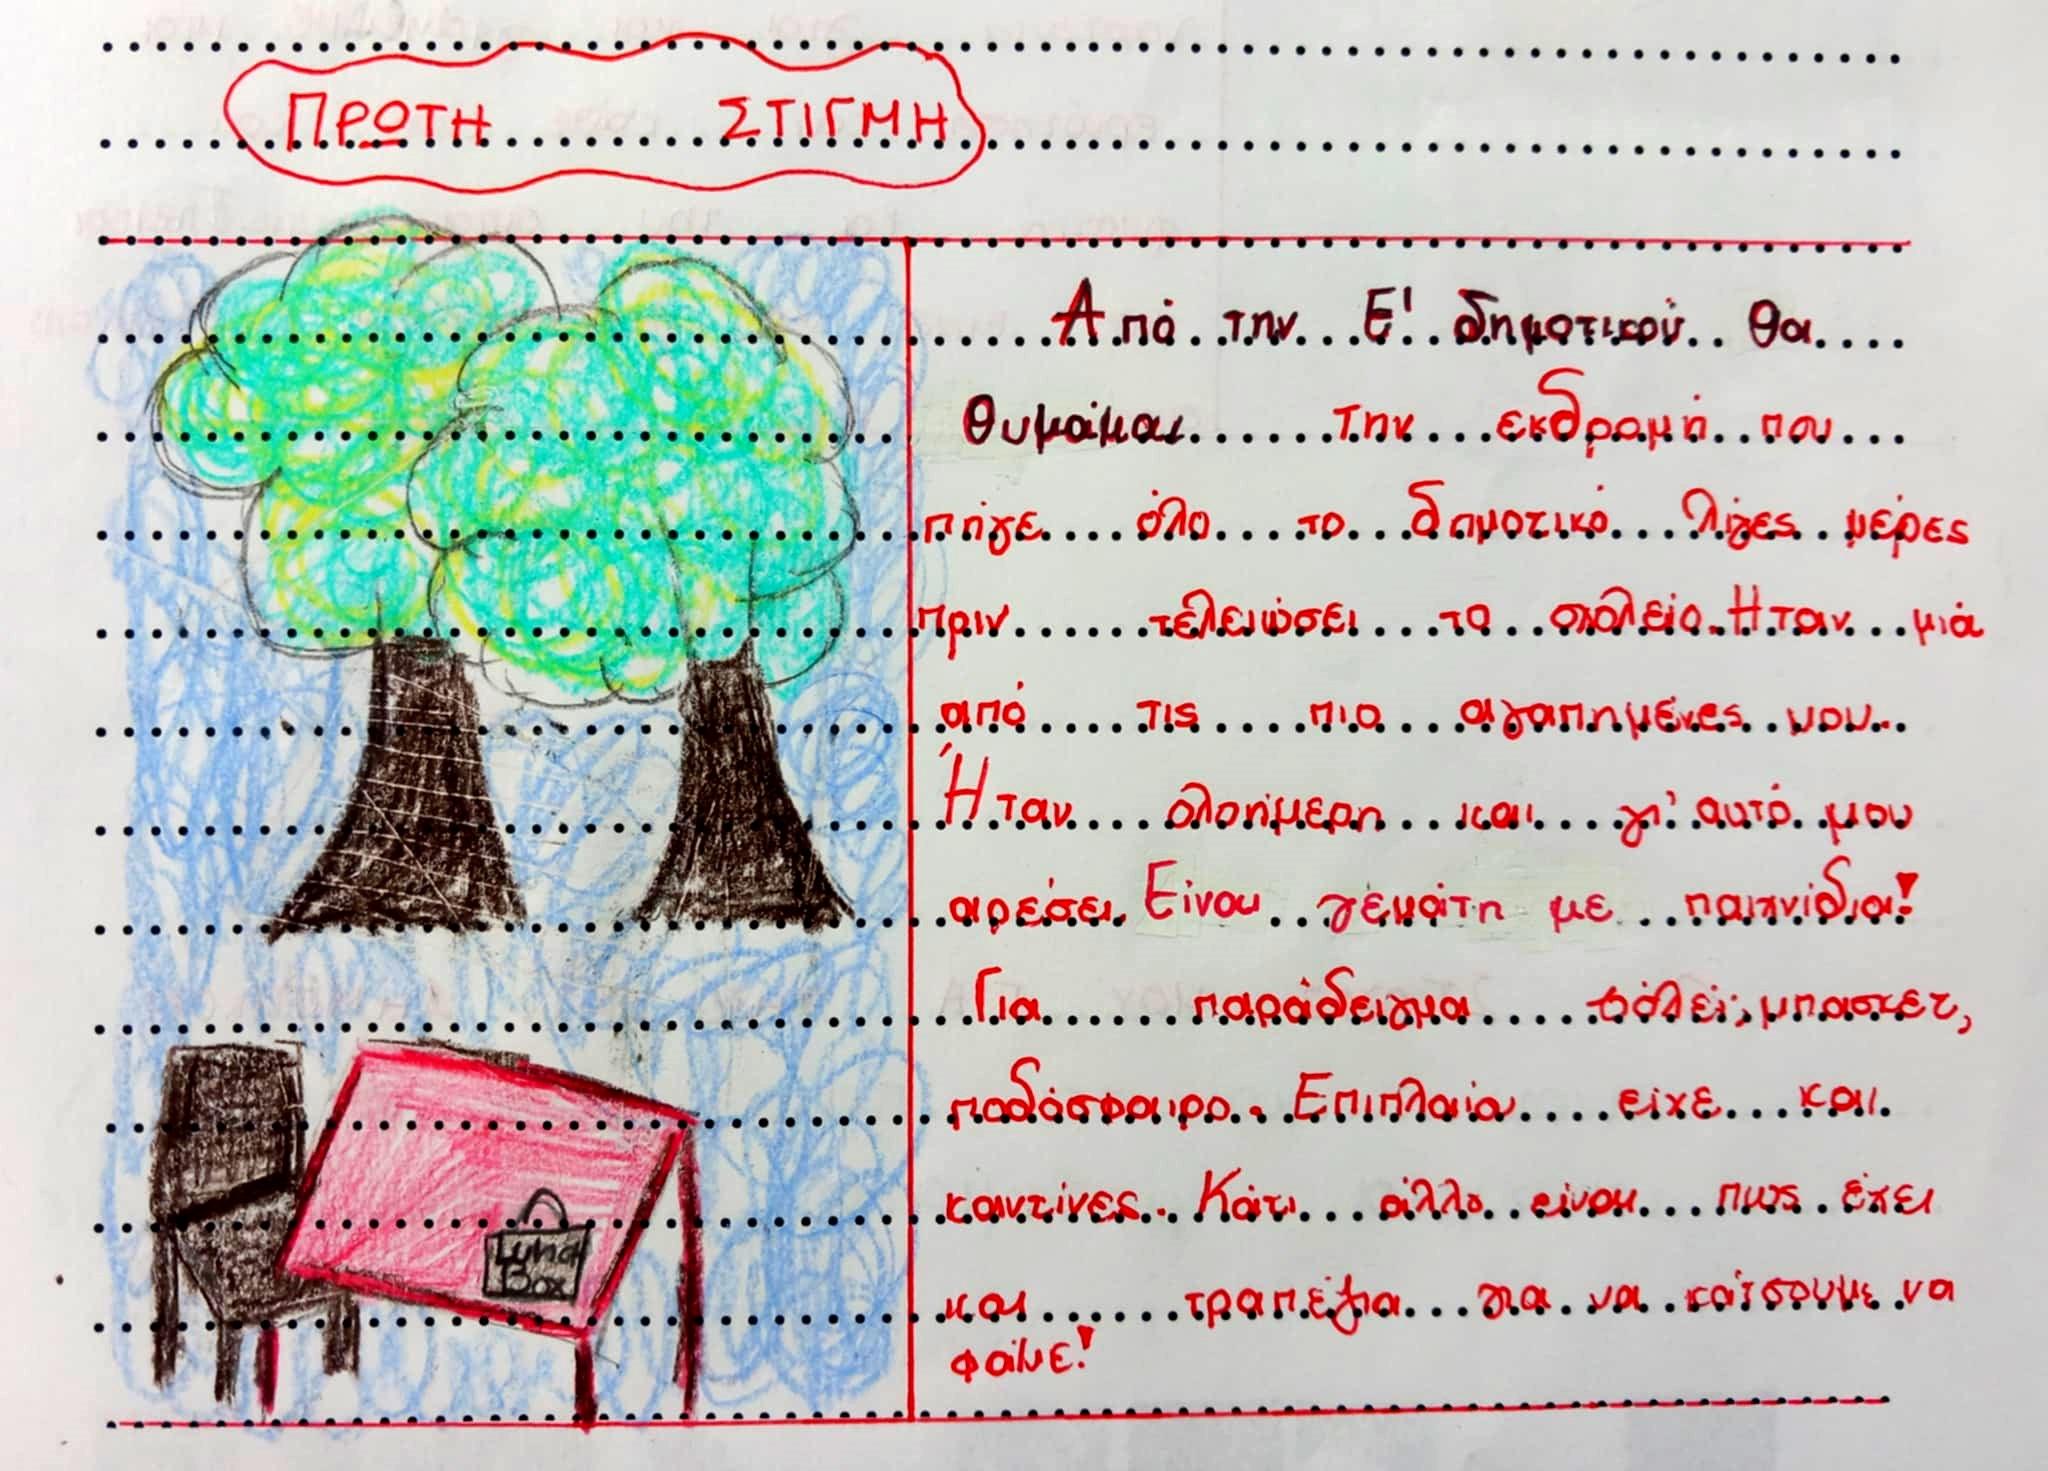 ΠΡΩΤΗ ΣΤΙΓΜΗ
Από την Ε' δημοτικού θα
θυμάμαι την εκδρομή που
πήγε όλο το δημοτικό λίγες μέρες
πριν τελειώσει το σχολείο. Ηταν μιά
από τις πιο αγαπημένες μου.
Ήταν ολοήμερη και γι' αυτό μου
αρέσει. Είναι γεμάτη με παιχνίδια!
Για παράδειγμα βόλεϊ, μπάσκετ,
ποδόσφαιρο. Επιπλαίον είχε και
καντίνες. Κάτι άλλο είναι πως έχει
και τραπέζια για να κάτσουμε να
φάμε!
Lunch
Box